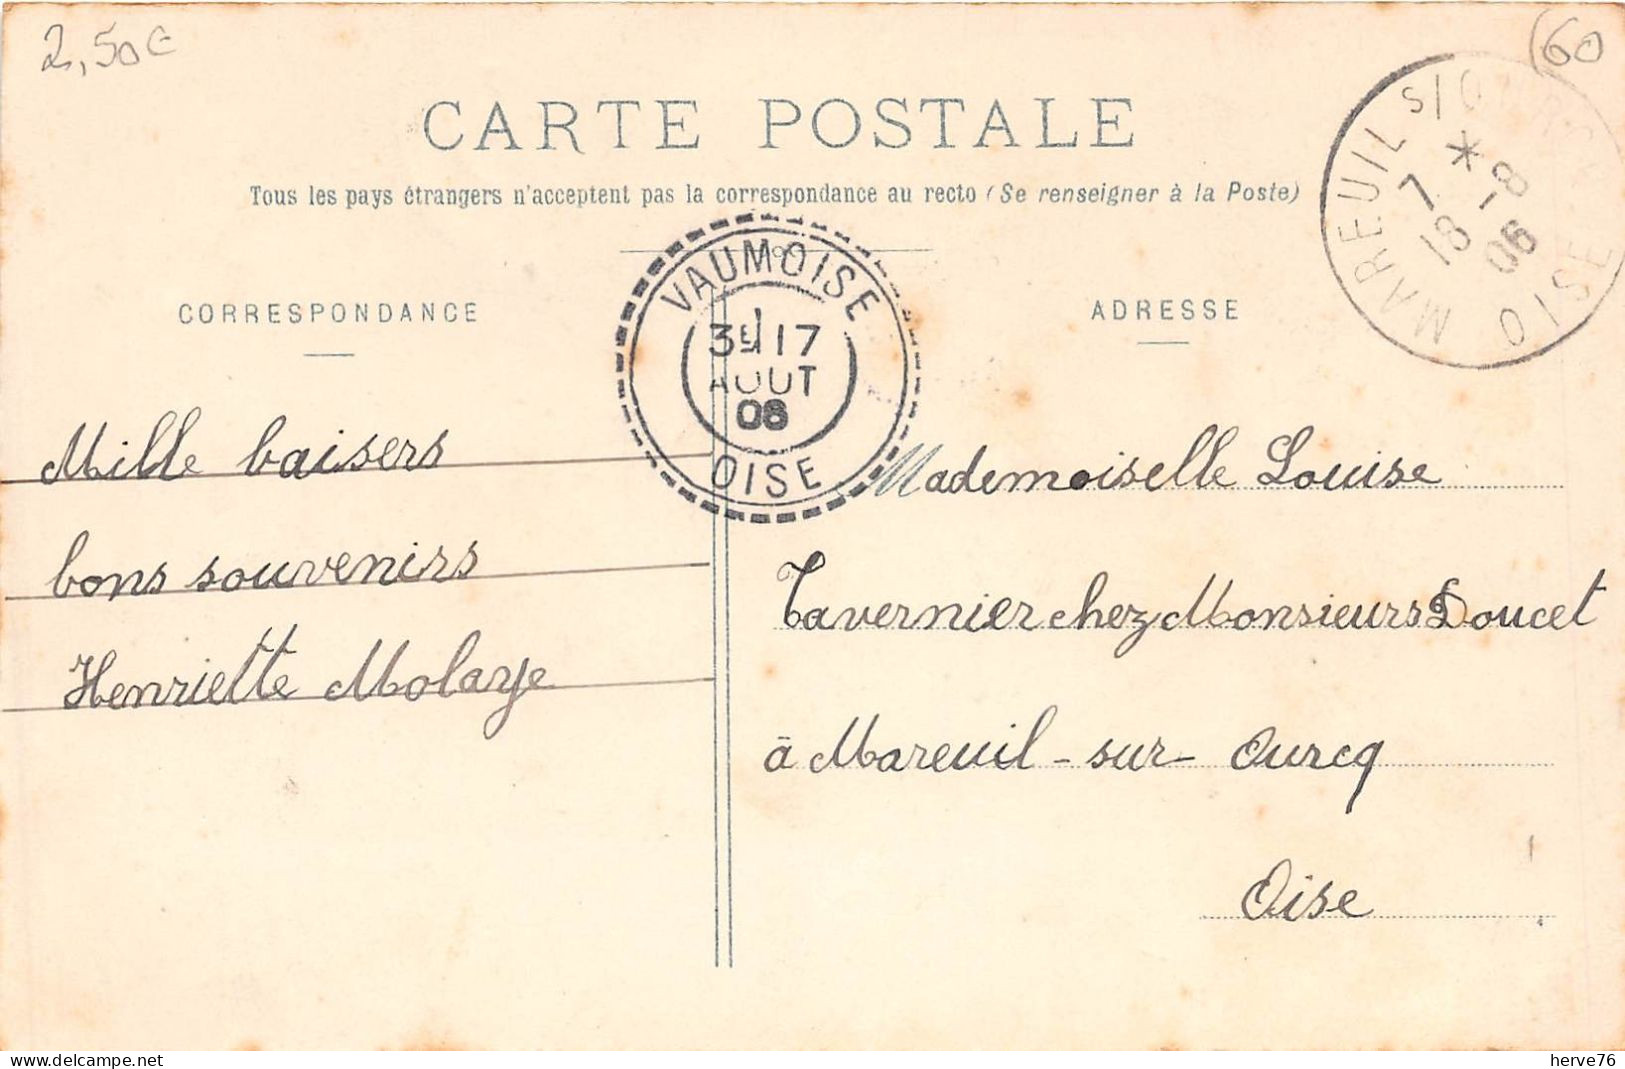 2,50€
(60
CARTE POSTALE
Tous les pays étrangers n'acceptent pas la correspondance au recto (Se renseigner à la Poste)
MAREUIL S/OURCQ
7 * 18 -8 06
OISE
VAUMOISE
3E 17
AOUT
06
OISE
CORRESPONDANCE
ADRESSE
Mille baisers
bons souvenirs
Henriette Molaye
Mademoiselle Louise
Tavernier chez Monsieurs Doucet
à Mareuil-sur-Ourcq
Oise
herve76